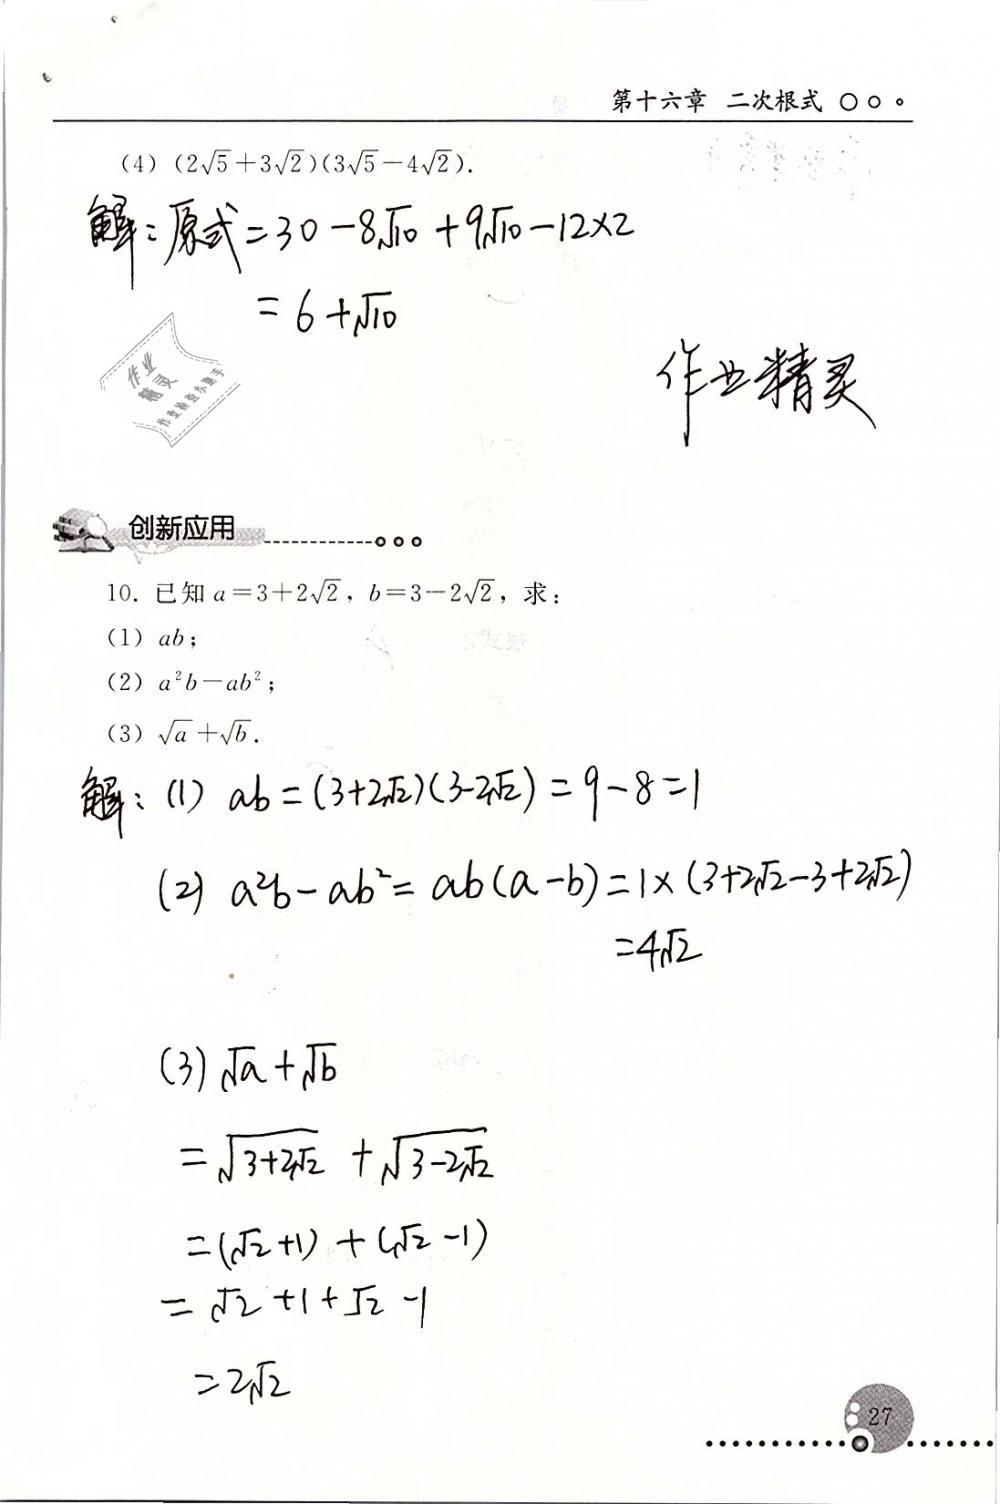 第十六章 二次根式
(4) (2√5+3√2)(3√5-4√2).
解:原式=30-8√10+9√10-12×2
=6+√10
作业
精灵
作业检查小助手
作业精灵
创新应用
10. 已知 a=3+2√2, b=3-2√2, 求:
(1) ab;
(2) a²b-ab²;
(3) √a+√b.
解:(1) ab=(3+2√2)(3-2√2)=9-8=1
(2) a²b-ab²=ab(a-b)=1×(3+2√2-3+2√2)
=4√2
(3) √a+√b
=√(3+2√2) +√(3-2√2)
=(√2+1)+(√2-1)
=√2+1+√2-1
=2√2
27